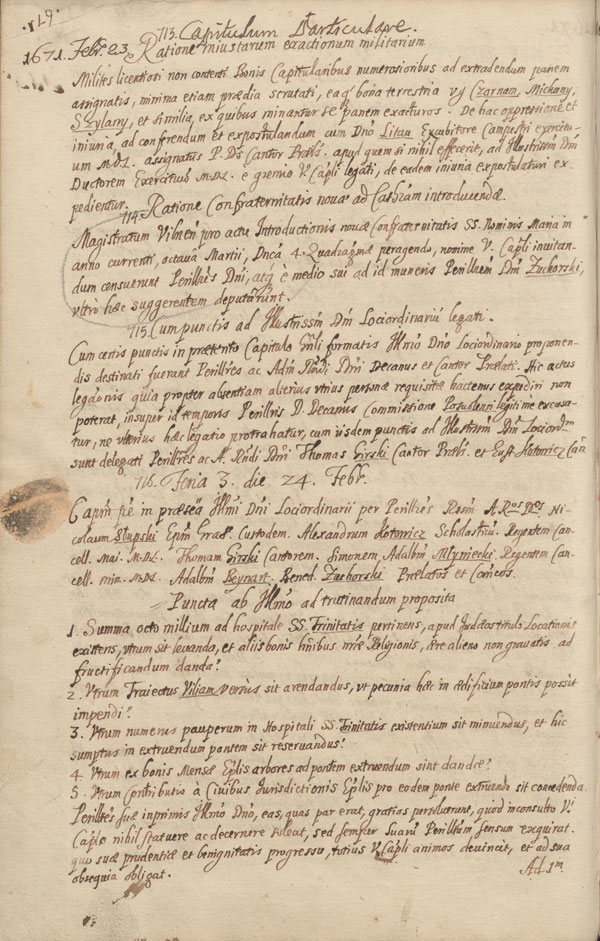 .179.
113. Capitulum Particulare.
1671. Febr: 23. Ratione iniustarum exactionum militarium
Milites licentiosi non contenti Bonis Capitularibus numerosioribus ad extradendum panem
assignatis, minima etiam prædia scrutati, eaq́ bona terrestria vg Czarnam, Mickuny,
Szylany, et similia, ex quibus minantur se panem exacturos. De hac oppressione et
iniuria, ad conferendum et expostulandum cum Dno Litau Excubitore Campestri exercitu-
um M.D.L. assignatus P. Ds Cantor Præls. apud quem si nihil effecerit, ad Illustrissm Dm
Ductorem Exercituū M.D.L. e gremio V. Capli legati, de eadem iniuria expostulaturi ex
pedientur.
114. Ratione Confraternitatis nouæ ad Cathram introducendæ.
Magistratum Vilnen pro actu Introductionis nouæ Confraternitatis SS. Nominis Mariæ in
anno currenti, octaua Martii, Dnca 4. Quadragmæ peragendo, nomine V. Capli inuitan-
dum censuerunt Perillres Dni, atq́ e medio sui ad id muneris Perillrem Dm Zuchorski,
vltro hæc suggerentem deputarunt.
115. Cum punctis ad Illustrissm Dm Lociordinariū legati.
Cum certis punctis in prætento Capitulo Gnli formatis Illmo Dno Lociordinario proponen-
dis destinati fuerant Perillres ac Adm Rndi Dni Decanus et Cantor Prælati. Hic actus
legaonis quia propter absentiam alterius vtrius personæ requisitæ hactenus expediri non
poterat, insuper id temporis Perillris D. Decanus Commissione legitime excusa-
tur, ne vlterius hæc legatio protrahatur, cum iisdem punctis ad Illustrissm Dm Lociordrm
sunt delegati Perillres ac A. Rndi Dni Thomas Girski Cantor Præls. et Eust. Kotowicz Can
116. Feria 3. die 24. Febr.
Caplm fit in præsea Illmi Dni Lociordinarii per Perillres Rssm A. Ros Dnos Ni-
colaum Slupski Epm Grad. Custodem. Alexandrum Kotowicz Scholasticū. Regentem Can-
cell. Mai. M.D.L. Thomam Girski Cantorem. Simonem Adalbm Mlyniecki Regentem Can-
cell. min. M.D.L. Adalbm Beynart. Bened. Zuchorski Prælatos et Cancos.
Puncta ab Illmo ad trutinandum proposita
1. Summa octo millium ad hospitale SS. Trinitatis pertinens, apud Iuddos titulo Locationis
existens, vtrum sit leuanda, et aliis bonis hnibus nræ Religionis, ære alieno non grauatis ad
fructificandum danda?
2. Vtrum Traiectus Viliam versus sit arendandus, vt pecunia hæc in ædificium pontis possit
impendi?
3. Vtrum numerus pauperum in Hospitali SS. Trinitatis existentium sit minuendus, et hic
sumptus in extruendum pontem sit reseruandus?
4. Vtrum ex bonis Mensæ Eplis arbores ad pontem extruendum sint dandæ?
5. Vtrum contributio à Ciuibus Iurisdictionis Eplis pro eodem ponte extruendo sit concedenda.
Perillres suæ inprimis Illmo Dno, eas, quas par erat, gratias persoluerunt, quod inconsulto V.
Caplo nihil statuere ac decernere soleat, sed semper Suarū Perillium sensum exquirat.
quo suæ prudentiæ et benignitatis progressu, totius V. Capli animos deuincit, et ad sua
obsequia obligat.
Ad 1m.